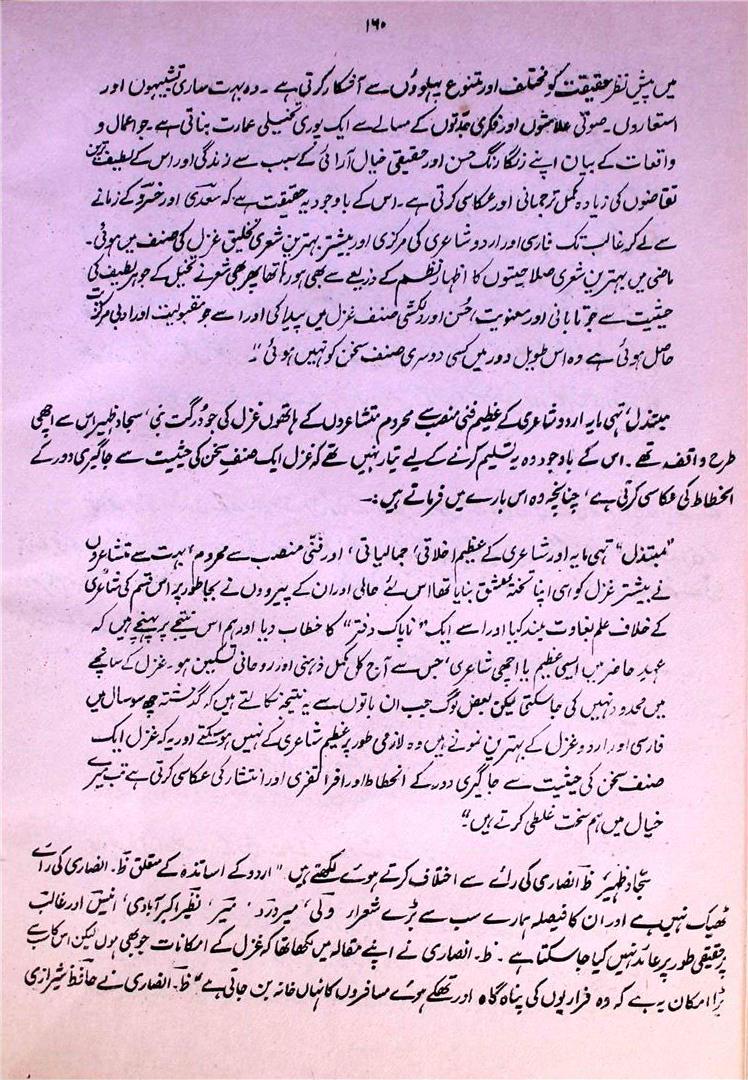 ۱۶۰
میں پیشِ نظر حقیقت کو مختلف اور متنوع پہلوؤں سے آشکار کرتی ہے ۔ وہ بہت ساری تشبیہوں اور
استعاروں ۔ صوتی علامتوں اور فکری جدتوں کے مسالے سے ایک پوری تخیلی عمارت بناتی ہے ۔ جو اعمال و
واقعات کے بیان اپنے رنگا رنگ حسن اور حقیقی خیال آرائی کے سبب سے زندگی اور اس کے لطیف ترین
تقاضوں کی زیادہ مکمل ترجمانی اور عکاسی کرتی ہے ۔ اس کے باوجود یہ حقیقت ہے کہ سعدی اور خسرو کے زمانے
سے لے کر غالب تک فارسی اور اردو شاعری کی مرکزی اور بیشتر بہترین شعری تخلیق غزل کی صنف میں ہوئی ۔
ماضی میں بہترین شعری صلاحیتوں کا اظہار نظم کے ذریعے سے بھی ہو رہا تھا پھر بھی شعر نے تخیل کے جوہر لطیف کی
حیثیت سے جو تابانی اور معنویت، حُسن اور دلکشی صنف غزل میں پیدا کی اور اسے جو مقبولیت اور ادبی مرکزیت
حاصل ہوئی ہے وہ اس طویل دور میں کسی دوسری صنف سخن کو نہیں ہوئی ۔"
مبتذل، تہی مایہ اردو شاعری کے عظیم فنی منصب سے محروم متشاعروں کے ہاتھوں غزل کی جو دُرگت بنی، سجاد ظہیر اس سے اچھی
طرح واقف تھے ۔ اس کے باوجود وہ یہ تسلیم کرنے کے لیے تیار نہیں تھے کہ غزل ایک صنفِ سخن کی حیثیت سے جاگیری دور کے
انحطاط کی عکاسی کرتی ہے، چنانچہ وہ اس بارے میں فرماتے ہیں :۔
"مبتذل" تہی مایہ اور شاعری کے عظیم اخلاقی، جمالیاتی، اور فنی منصب سے محروم، بہت سے متشاعروں
نے بیشتر غزل کو ہی اپنا تختۂ مشق بنایا تھا اس لئے حالی اور ان کے پیرووں نے بجا طور پر اس قسم کی شاعری
کے خلاف علم بغاوت بلند کیا اور اسے ایک "ناپاک دفتر" کا خطاب دیا اور ہم اس نتیجے پر پہنچے ہیں کہ
عہدِ حاضر میں ایسی عظیم یا اچھی شاعری، جس سے آج کل مکمل ذہنی اور روحانی تسکین ہو ۔ غزل کے سانچے
میں محدود نہیں کی جاسکتی لیکن بعض لوگ جب ان باتوں سے یہ نتیجہ نکالتے ہیں کہ گذشتہ چھ سو سال میں
فارسی اور اردو غزل کے بہترین نمونے ہیں وہ لازمی طور پر عظیم شاعری کے نہیں ہوسکتے اور یہ کہ غزل ایک
صنف سخن کی حیثیت سے جاگیری دور کے انحطاط اور افراتفری اور انتشار کی عکاسی کرتی ہے تب میرے
خیال میں ہم سخت غلطی کرتے ہیں ۔"
سجاد ظہیر، ظ ۔ انصاری کی رائے سے اختلاف کرتے ہوئے لکھتے ہیں " اردو کے اساتذہ کے متعلق ظ ۔ انصاری کی رائے
ٹھیک نہیں ہے اور ان کا فیصلہ ہمارے سب سے بڑے شعراء ولی، میر درد، میر، نظیر اکبر آبادی، انیس اور غالب
پر حقیقی طور پر عائد نہیں کیا جاسکتا ہے ۔ ظ ۔ انصاری نے اپنے مقالہ میں لکھا تھا کہ غزل کے امکانات جو بھی ہوں لیکن اس کا سب سے
بڑا امکان یہ ہے کہ وہ فراریوں کی پناہ گاہ اور تھکے ہوئے مسافروں کا نہاں خانہ بن جاتی ہے" ظ ۔ انصاری نے حافظ شیرازی